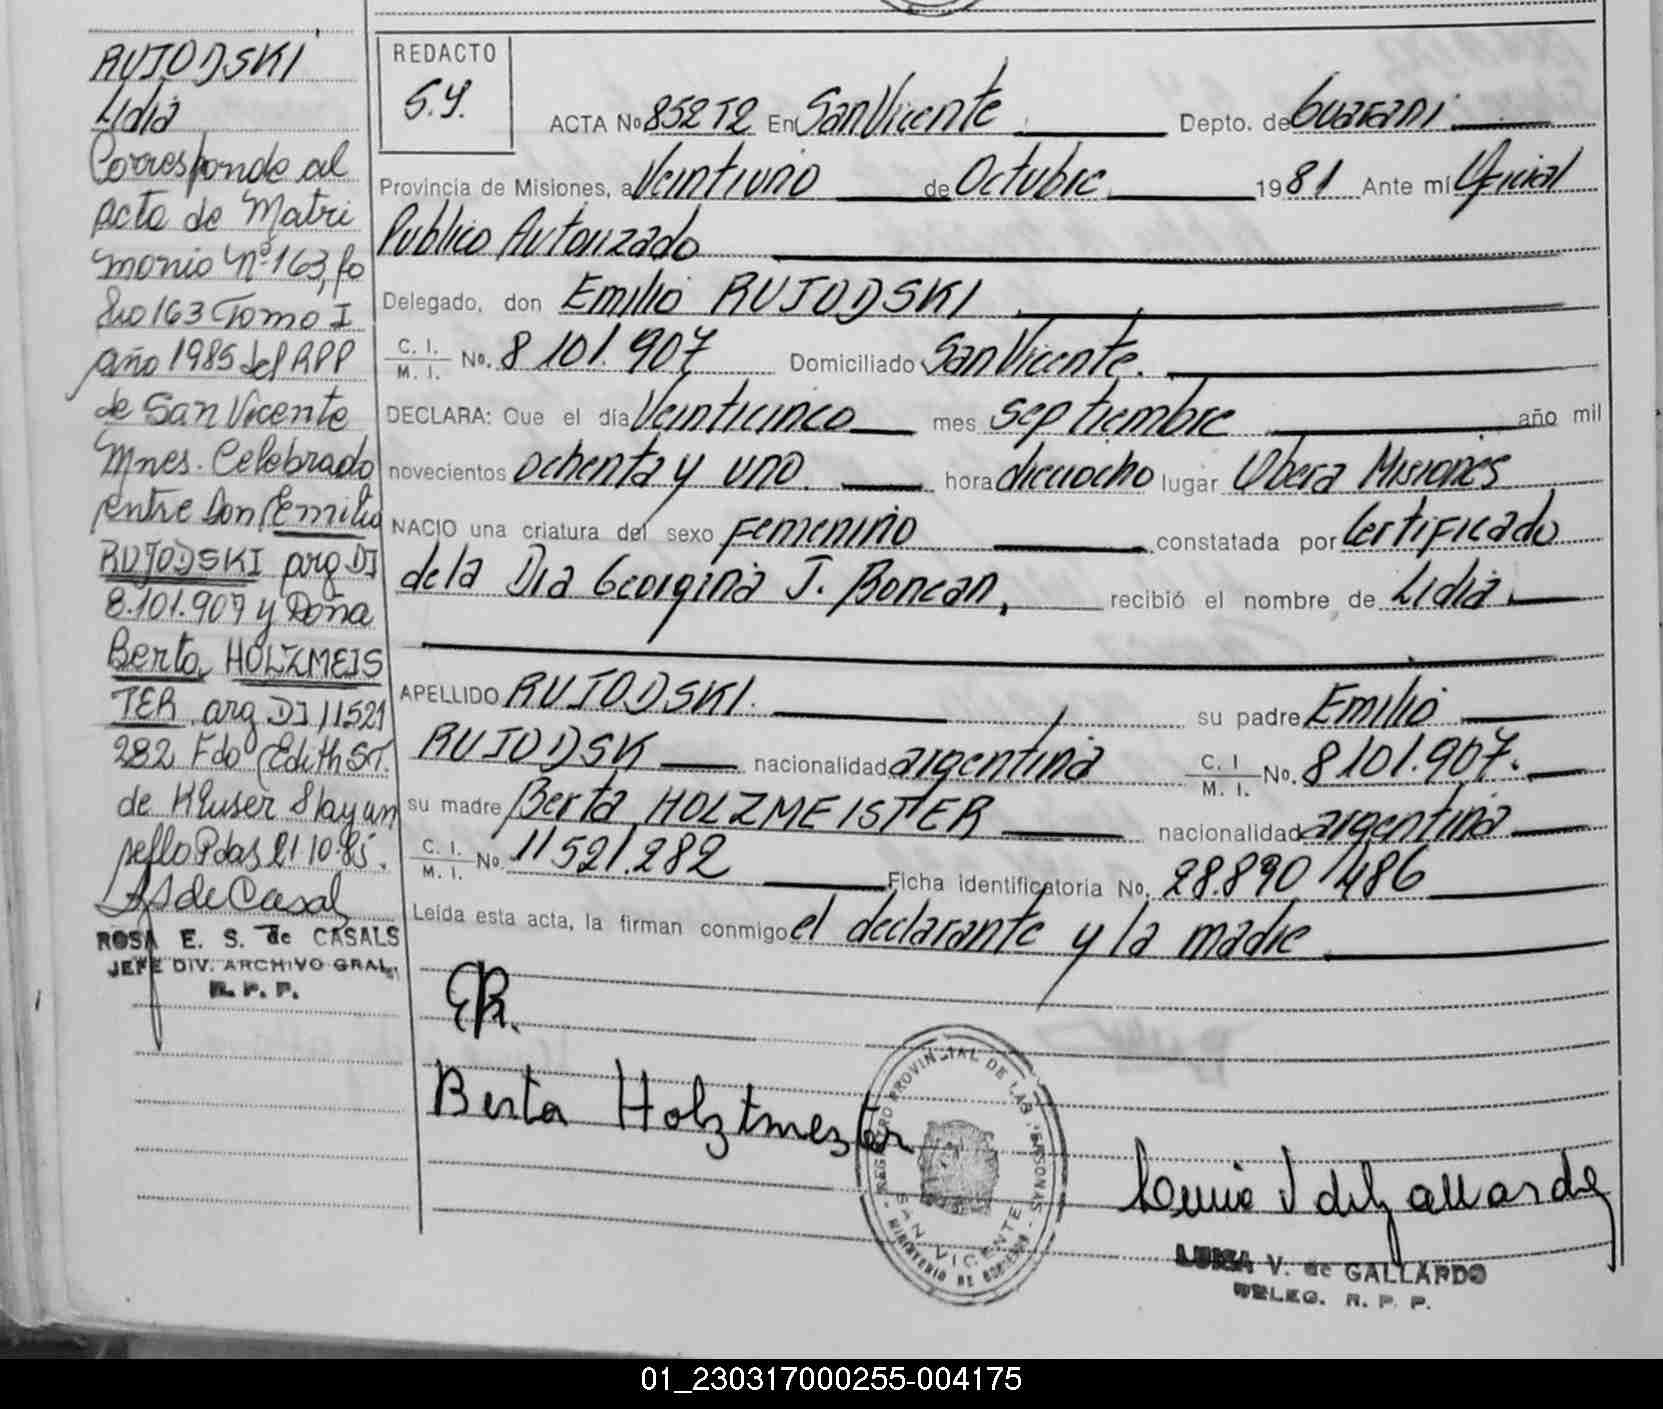 RUJODSKI
Lidia
Corresponde al
acta de Matri
monio Nº 163, fo
lio 163 Tomo I
año 1985 del RPP
de San Vicente
Mnes. Celebrado
entre Don Emilio
RUJODSKI arg DI
8.101.907 y Doña
Berta HOLZMEIS
TER arg DI 11521
282 Fdo Edith Sn.
de Kluser
Pdas 21 10 85.
RS de Casals
ROSA E. S. de CASALS
JEFE DIV. ARCHIVO GRAL.
R. P. P.
REDACTO
S.Y.
ACTA No 852 T2 En San Vicente Depto. de Guarani
Provincia de Misiones, a Veintiuno de Octubre 1981 Ante mí Oficial
Publico Autorizado
Delegado, don Emilio RUJODSKI
C. I. M. I. No. 8 101.907 Domiciliado San Vicente.
DECLARA: Que el día Veinticinco mes septiembre año mil
novecientos ochenta y uno. hora dieciocho lugar Obera Misiones
NACIO una criatura del sexo Femenino constatada por Certificado
de la Dra Georgina J. Boncan, recibió el nombre de Lidia.
APELLIDO RUJODSKI. su padre Emilio
RUJODSK nacionalidad argentina C. I M. I. No. 8 101.907.
su madre Berta HOLZMEISTER nacionalidad argentina
C. I. M. I. No. 11 521.282 Ficha identificatoria No. 28.890/486
Leída esta acta, la firman conmigo el declarante y la madre
ER.
Berta Holztmester
REGISTRO PROVINCIAL DE LAS PERSONAS
SAN VICENTE
MINISTERIO DE GOBIERNO
LUISA V. de GALLARDO
DELEG. R. P. P.
01_230317000255-004175